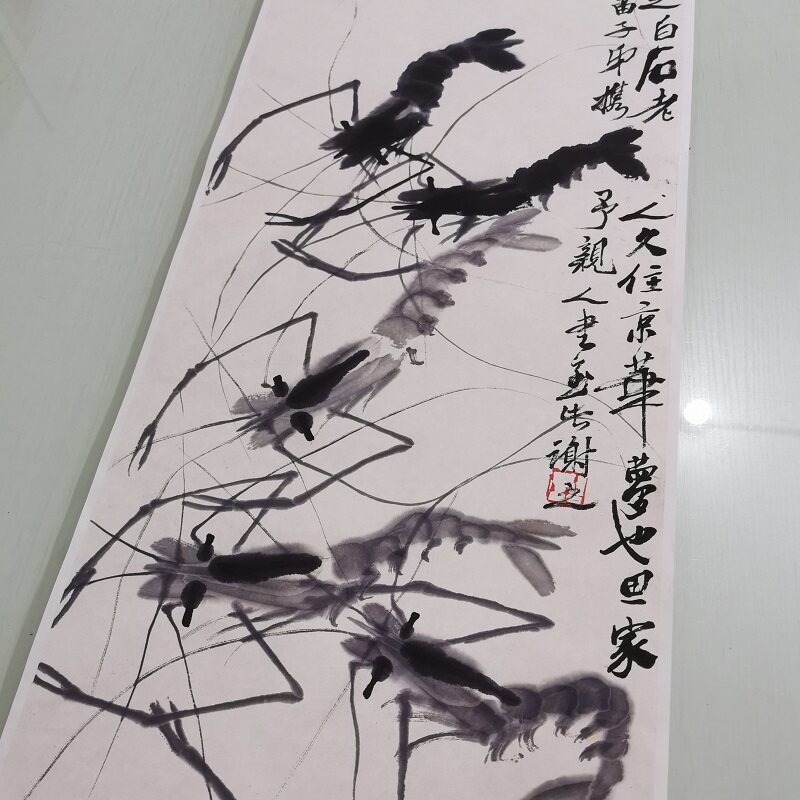 之白石老人久住京華夢也思家
苗子甲攜予親人書並告謝之